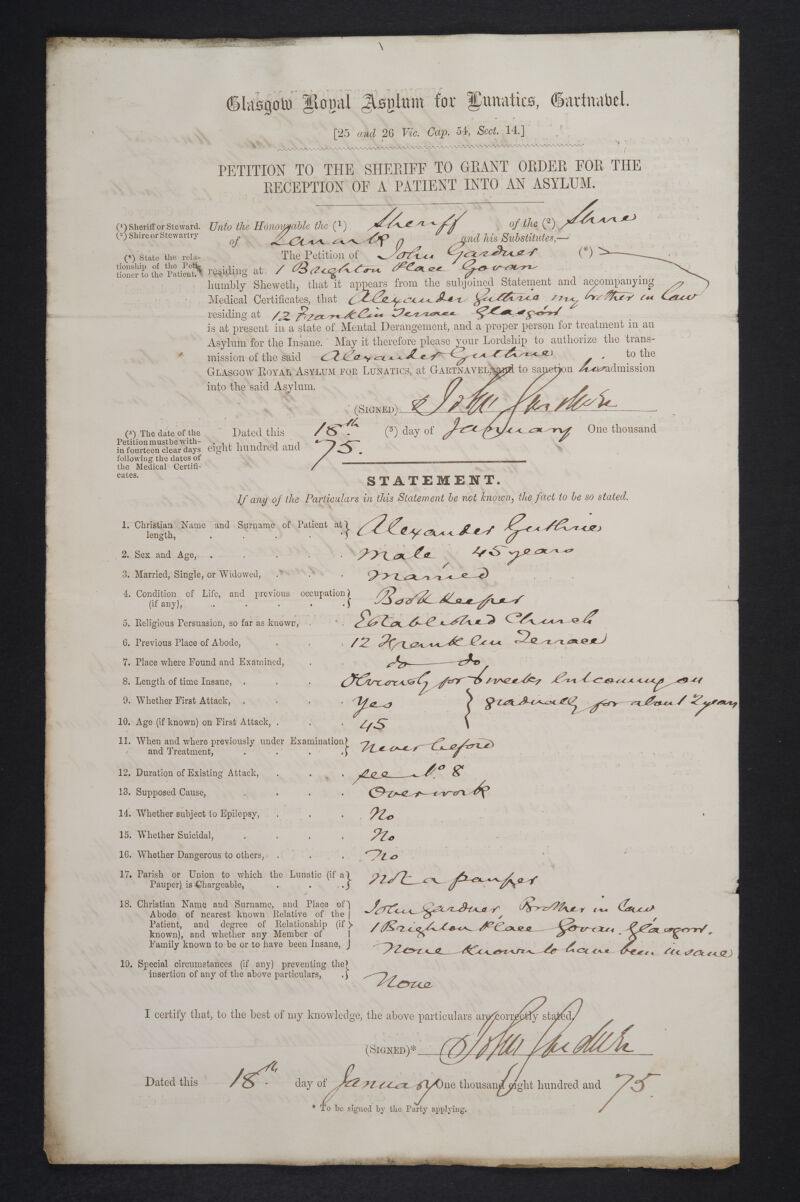 Glasgow Royal Asylum for Lunatics, Gartnabel.
[25 and 26 Vic. Cap. 54, Sect. 14.]
PETITION TO THE SHERIFF TO GRANT ORDER FOR THE
RECEPTION OF A PATIENT INTO AN ASYLUM.
(¹) Sheriff or Steward.
(²) Shire or Stewartry
Unto the Honourable the (¹) Sheriff of the (²) Shire
of Lanark and his Substitutes,—
(*) State the rela-
tionship of the Peti-
tioner to the Patient.
The Petition of John Gardner (*)
residing at 1 Brighton Place Govan
humbly Sheweth, that it appears from the subjoined Statement and accompanying
Medical Certificates, that Alexander Guthrie my brother in law
residing at 12 Franklin Terrace Glasgow
is at present in a state of Mental Derangement, and a proper person for treatment in an
Asylum for the Insane. May it therefore please your Lordship to authorize the trans-
mission of the said Alexander Guthrie to the
GLASGOW ROYAL ASYLUM FOR LUNATICS, at GARTNAVEL, and to sanction his admission
into the said Asylum.
(SIGNED) John Gardner
(³) The date of the
Petition must be with-
in fourteen clear days
following the dates of
the Medical Certifi-
cates.
Dated this 18th (³) day of January One thousand
eight hundred and 75.
STATEMENT.
If any of the Particulars in this Statement be not known, the fact to be so stated.
1. Christian Name and Surname of Patient at
length, Alexander Guthrie
2. Sex and Age, Male, 45 years
3. Married, Single, or Widowed, Married
4. Condition of Life, and previous occupation
(if any), Book Keeper
5. Religious Persuasion, so far as known, Established Church
6. Previous Place of Abode, 12 Franklin Terrace
7. Place where Found and Examined, do do
8. Length of time Insane, Obviously for 6 weeks but coming on
9. Whether First Attack, Yes gradually for about 2 years
10. Age (if known) on First Attack, 45
11. When and where previously under Examination
and Treatment, Never before
12. Duration of Existing Attack, see No 8
13. Supposed Cause, Over work
14. Whether subject to Epilepsy, No
15. Whether Suicidal, No
16. Whether Dangerous to others, No
17. Parish or Union to which the Lunatic (if a
Pauper) is Chargeable, Not a pauper
18. Christian Name and Surname, and Place of John Gardner, Brother in law
Abode of nearest known Relative of the
Patient, and degree of Relationship (if 1 Brighton Place Govan. Glasgow.
known), and whether any Member of
Family known to be or to have been Insane, None known to have been insane
19. Special circumstances (if any) preventing the
insertion of any of the above particulars, None
I certify that, to the best of my knowledge, the above particulars are correctly stated,
(SIGNED)* John Gardner
Dated this 18th day of January One thousand eight hundred and 75.
* To be signed by the Party applying.